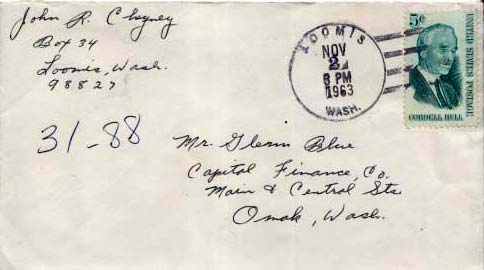 John R.
Box 34
Loomis, Wash.
98827
LOOMIS
NOV
2
PM
1963
WASH.
5¢
UNITED STATES POSTAGE
CORDELL HULL
31-88
Mr. Glenn Blue
Capitol Finance, Co.
Main & Central Sts
Omak, Wash.